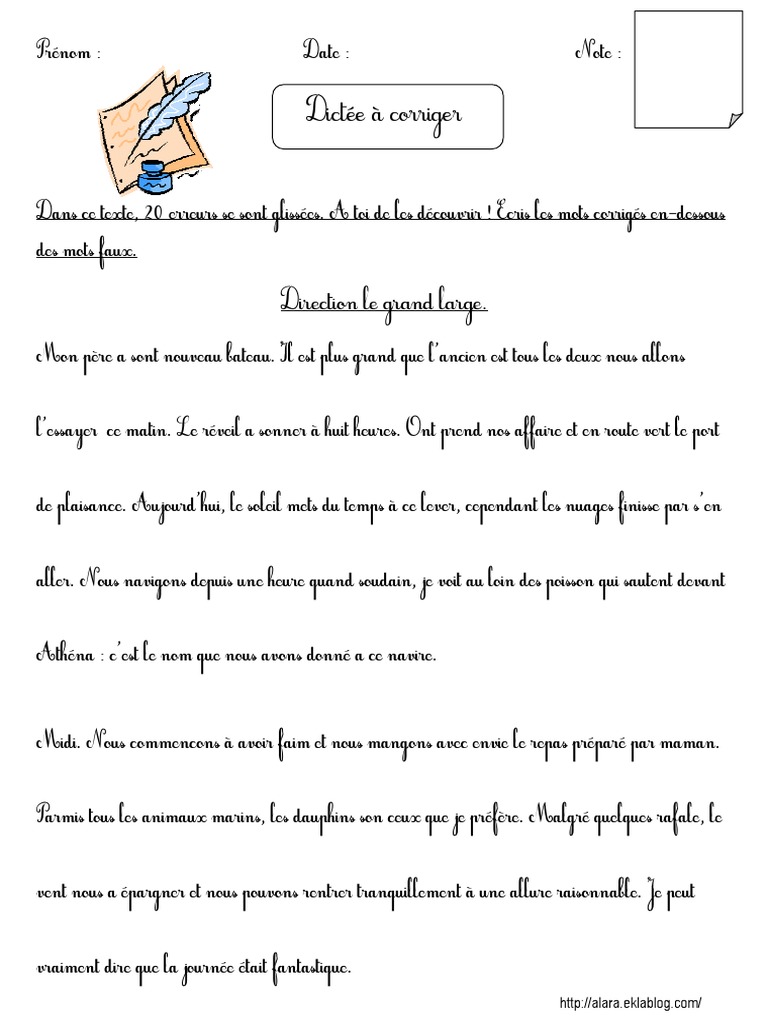 Prénom : Date : Note :
Dictée à corriger
Dans ce texte, 20 erreurs se sont glissées. A toi de les découvrir ! Ecris les mots corrigés en-dessous
des mots faux.
Direction le grand large.
Mon père a sont nouveau bateau. Il est plus grand que l'ancien est tous les deux nous allons
l'essayer ce matin. Le réveil a sonner à huit heures. Ont prend nos affaire et en route vert le port
de plaisance. Aujourd'hui, le soleil mets du temps à ce lever, cependant les nuages finisse par s'en
aller. Nous navigons depuis une heure quand soudain, je voit au loin des poisson qui sautent devant
Athéna : c'est le nom que nous avons donné a ce navire.
Midi. Nous commencons à avoir faim et nous mangons avec envie le repas préparé par maman.
Parmis tous les animaux marins, les dauphins son ceux que je préfère. Malgré quelques rafale, le
vent nous a épargner et nous pouvons rentrer tranquillement à une allure raisonnable. Je peut
vraiment dire que la journée était fantastique.
http://alara.eklablog.com/